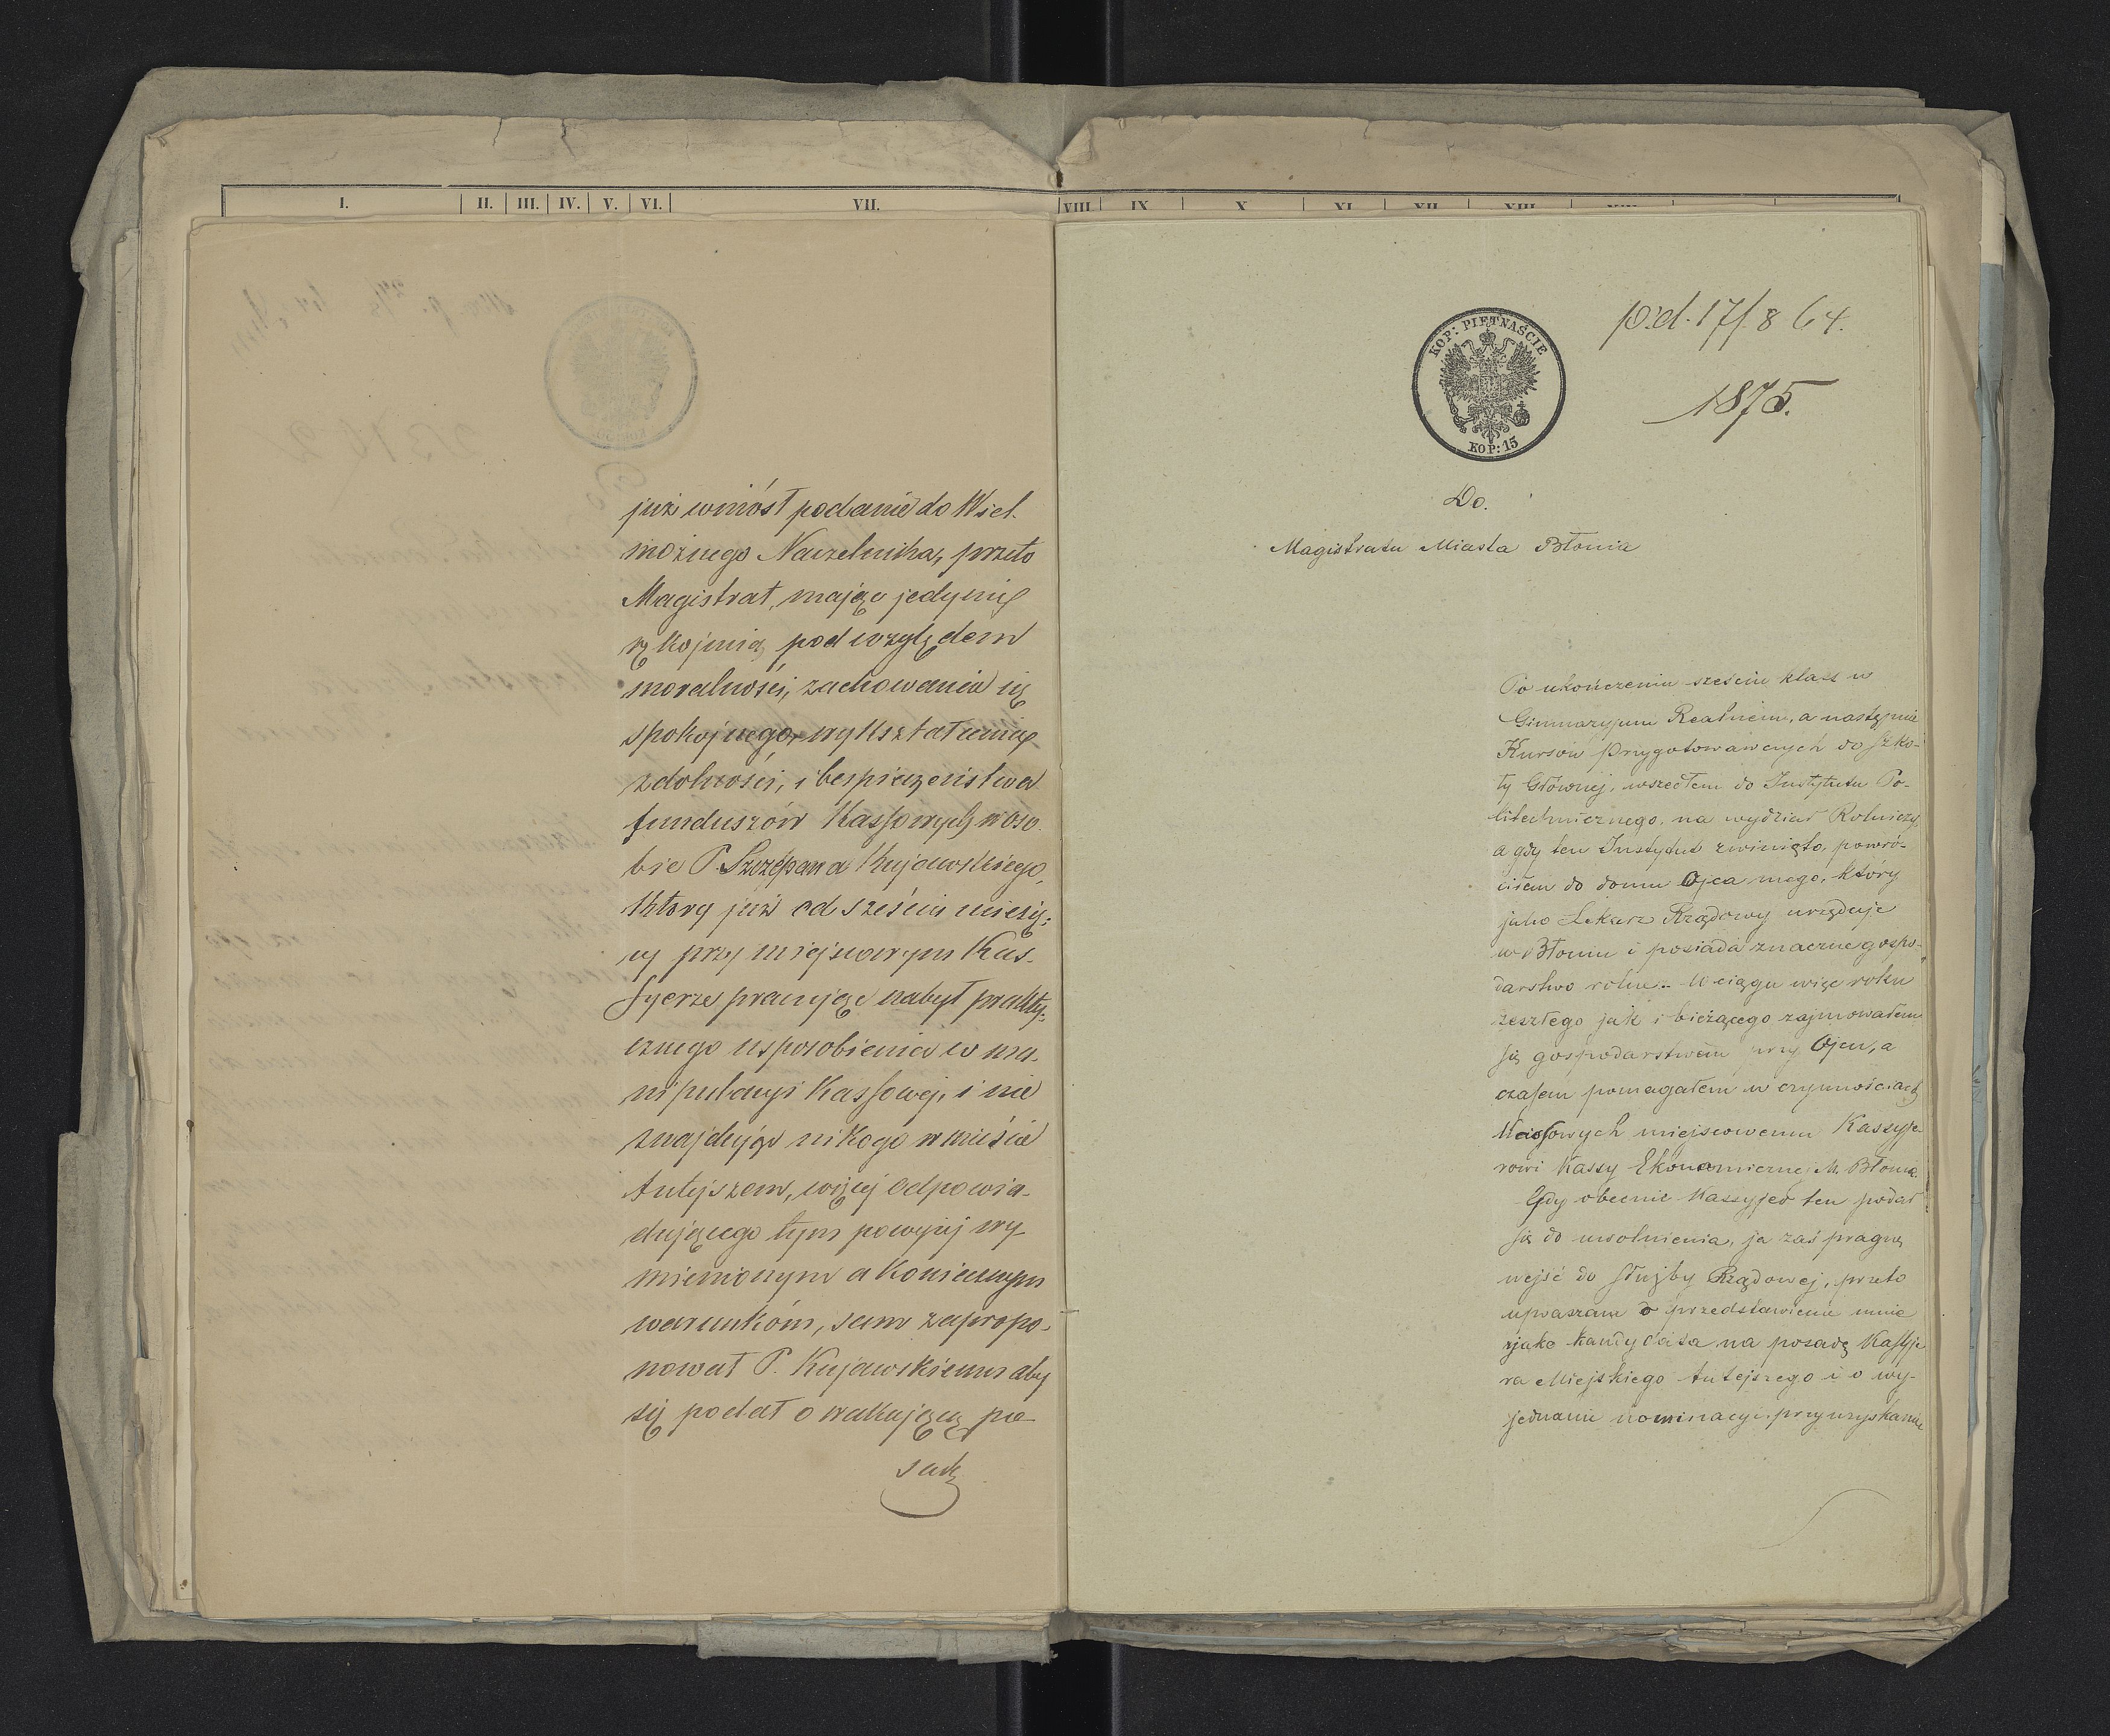 I. II. III. IV. V. VI. VII.
już wniósł podanie do Wiel-
możnego Naczelnika, przeto
Magistrat, mając jedynie
rękojmią pod względem
moralności, zachowania się
spokojnego, wykształcenia
zdolności, i bespieczeństwa
funduszów Kassowych w oso-
bie P. Szczepana Kujawskiego,
który już od sześciu miesię-
cy przy miejscowym Kas-
syerze pracując nabył prakty-
cznego usposobienia w ma-
nipulacyi Kassowej, i nie
znajdując nikogo w mieście
tutejszem, więcej odpowia-
dającego tym powyżej wy-
mienionym a koniecznym
warunkóm, sam zapropo-
nował P. Kujawskiemu aby
się podał o wakującą po-
sadę
VIII. IX. X. XI. XII. XIII.
p.d. 17/8 64.
1875.
KOP: PIĘTNAŚCIE
KOP: 15
Do.
Magistratu Miasta Błonia
Po ukończeniu sześciu klass w
Gimnazyjum Realnem, a następnie
Kursów Przygotowawczych do Szko-
ły Głównej, wszedłem do Instytutu Po-
litechnicznego, na wydział Rolniczy,
a gdy ten Instytut zwinięto, powró-
ciłem do domu Ojca mego, który
jako Lekarz Rządowy urzęduje
w Błoniu i posiada znaczne gospo-
darstwo rolne. W ciągu więc roku
zeszłego jak i bieżącego zajmowałem
się gospodarstwem przy Ojcu, a
czasem pomagałem w czynnościach
Kassowych miejscowemu Kassyje-
rowi Kassy Ekonomicznej M. Błonia.
Gdy obecnie Kassyjer ten podał
się do uwolnienia, ja zaś pragnę
wejść do służby Rządowej, przeto
upraszam o przedstawienie mnie
jako kandydata na posadę Kassyje
ra Miejskiego tutejszego i o wy-
jednanie nominacyi, przy uzyskaniu